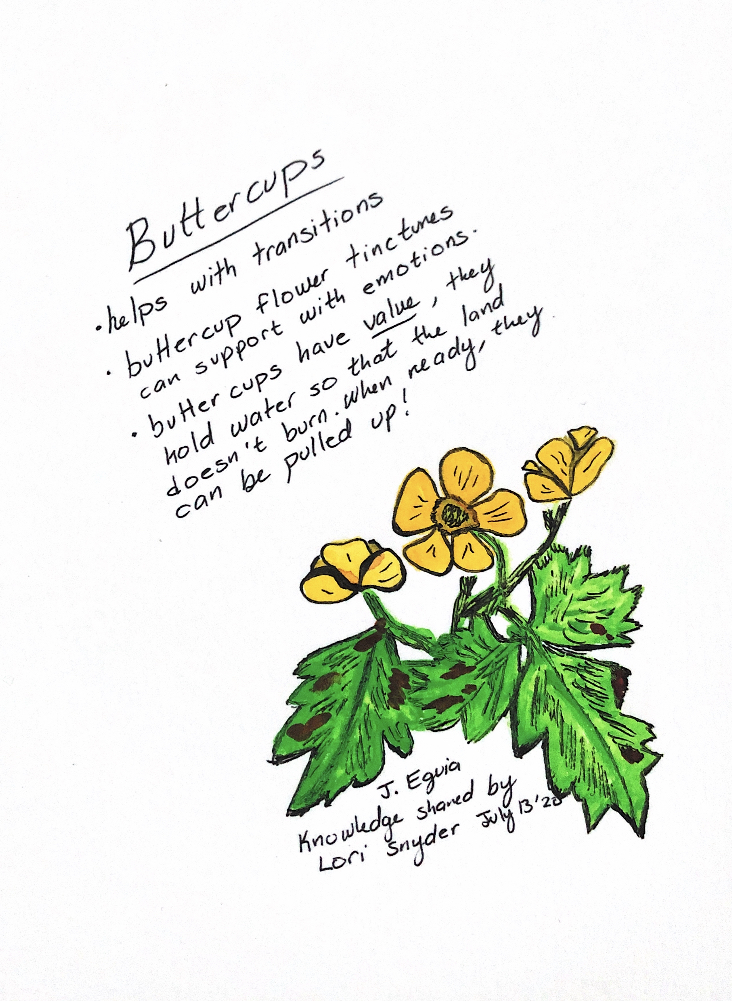 Buttercups
• helps with transitions
• buttercup flower tinctures
can support with emotions.
• buttercups have value, they
hold water so that the land
doesn't burn. When ready, they
can be pulled up!
J. Eguia
Knowledge shared by
Lori Snyder July 13 '20